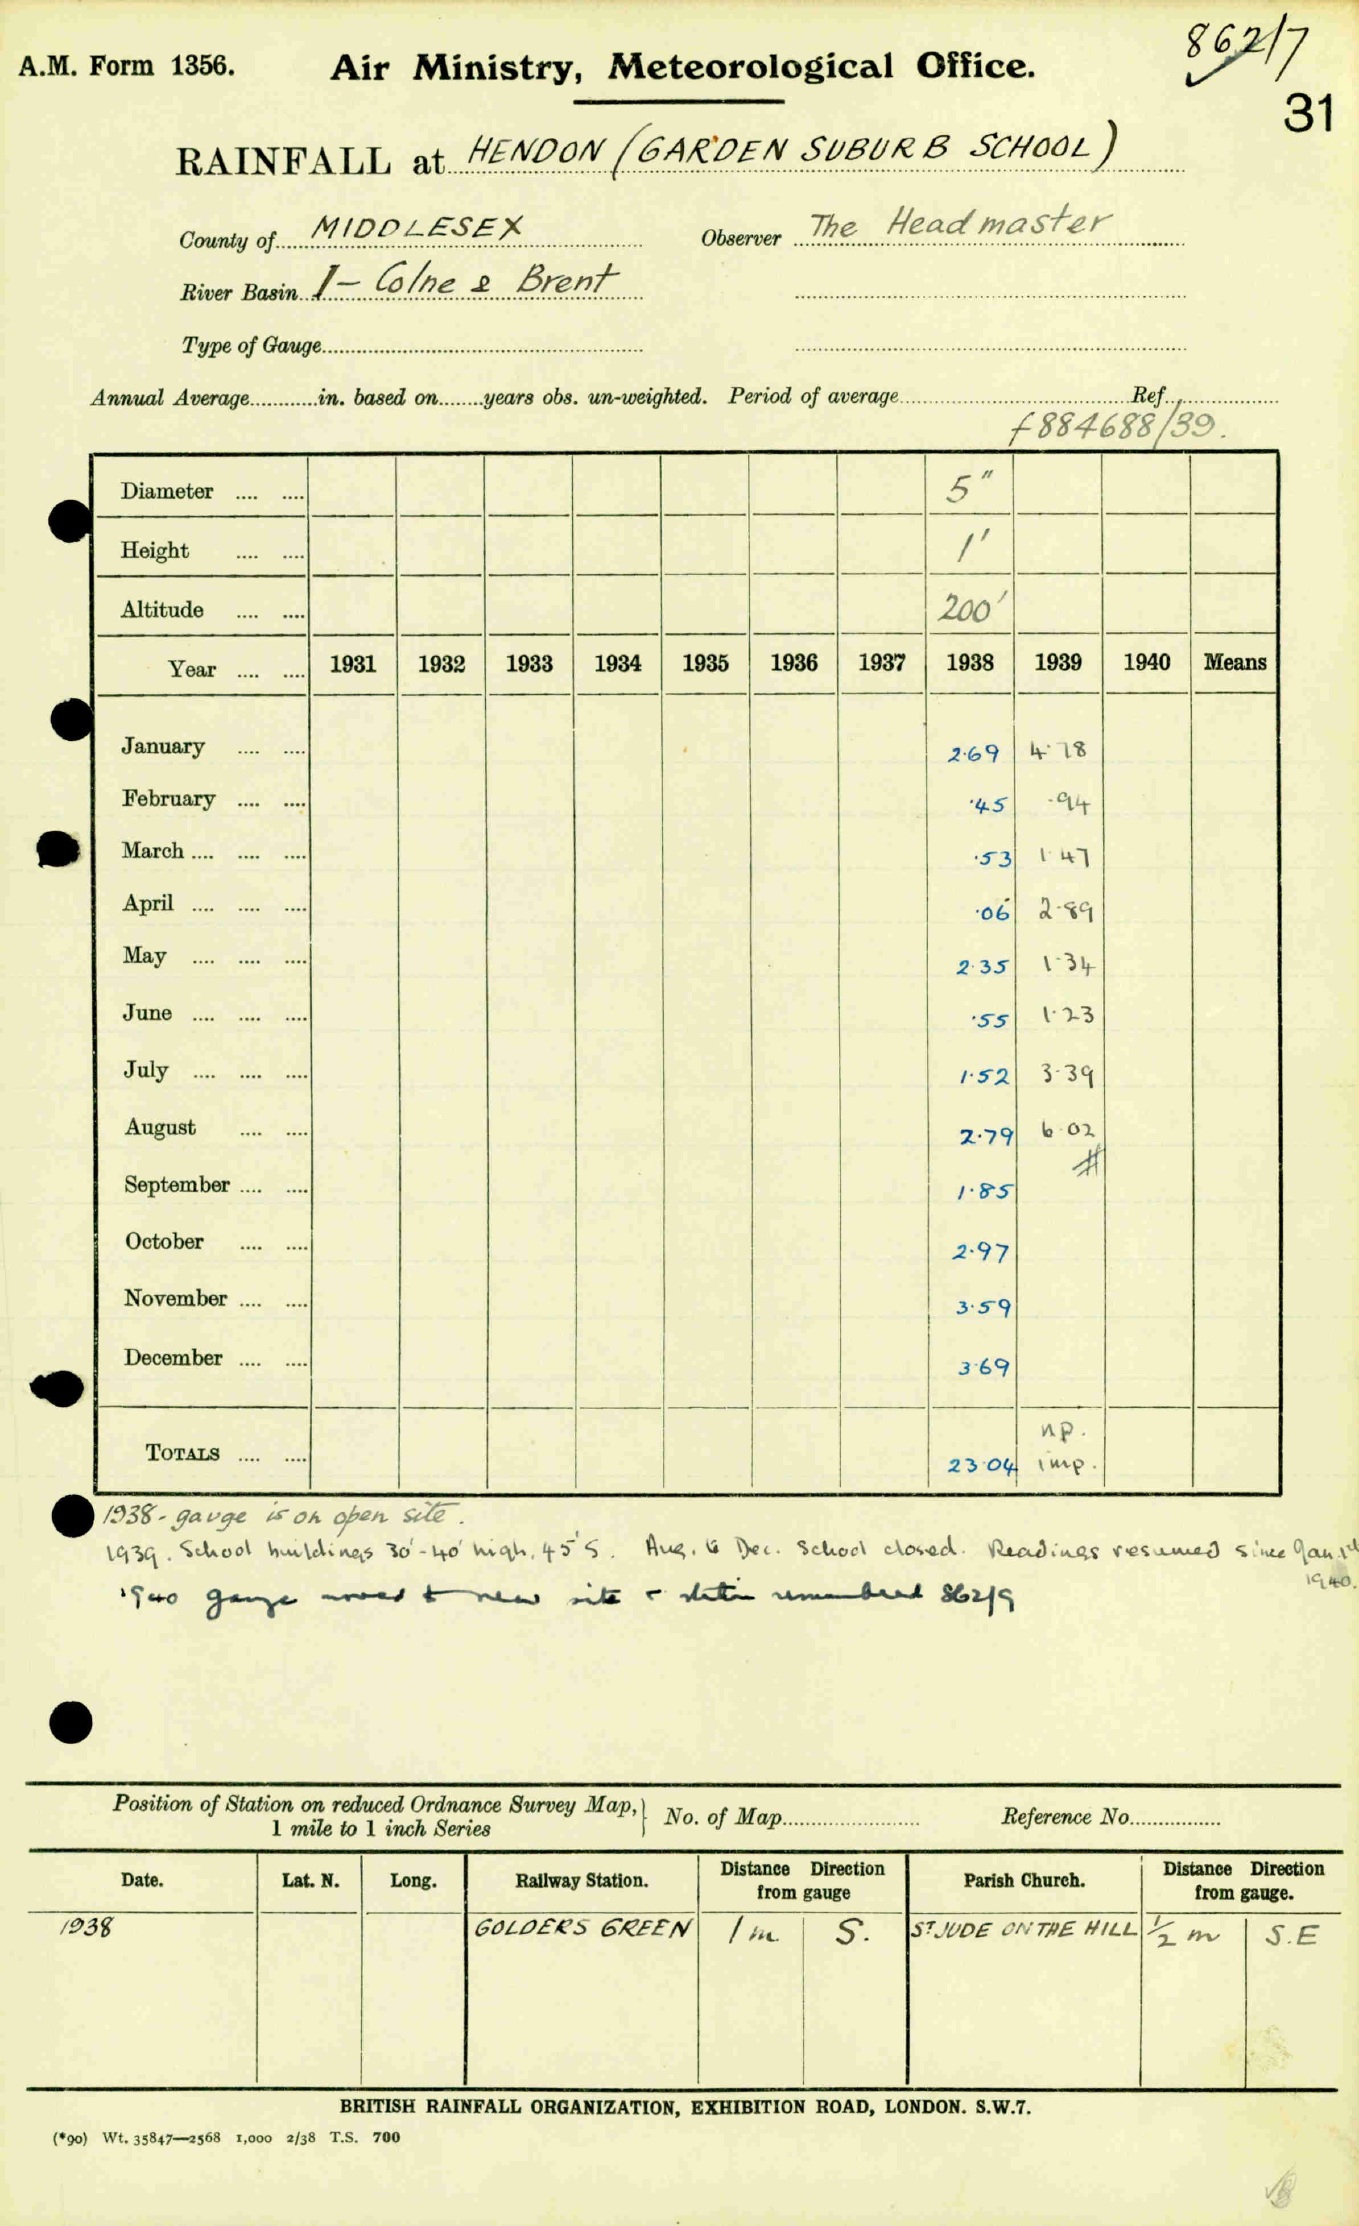 862/7
A.M. Form 1356. Air Ministry, Meteorological Office.
31
RAINFALL at HENDON (GARDEN SUBURB SCHOOL)
County of MIDDLESEX Observer The Headmaster
River Basin 1 – Colne & Brent
Type of Gauge
Annual Average in. based on years obs. un-weighted. Period of average Ref.
f884688/39.
Diameter 5"
Height 1'
Altitude 200'
Year 1931 1932 1933 1934 1935 1936 1937 1938 1939 1940 Means
January 2.69 4.78
February .45 .94
March .53 1.47
April .06 2.89
May 2.35 1.34
June .55 1.23
July 1.52 3.39
August 2.79 6.02
#
September 1.85
October 2.97
November 3.59
December 3.69
np.
TOTALS 23.04 imp.
1938 - gauge is on open site.
1939. School buildings 30'-40' high, 45' S. Aug. to Dec. School closed. Readings resumed since Jan. 1st
1940.
1940 gauge moved to new site & station renumbered 862/9
Position of Station on reduced Ordnance Survey Map, 1 mile to 1 inch Series No. of Map Reference No.
Date. Lat. N. Long. Railway Station. Distance Direction from gauge Parish Church. Distance Direction from gauge.
1938 GOLDERS GREEN 1 m S. ST JUDE ON THE HILL 1/2 m S.E
BRITISH RAINFALL ORGANIZATION, EXHIBITION ROAD, LONDON. S.W.7.
(*90) Wt. 35847—2568 1,000 2/38 T.S. 700